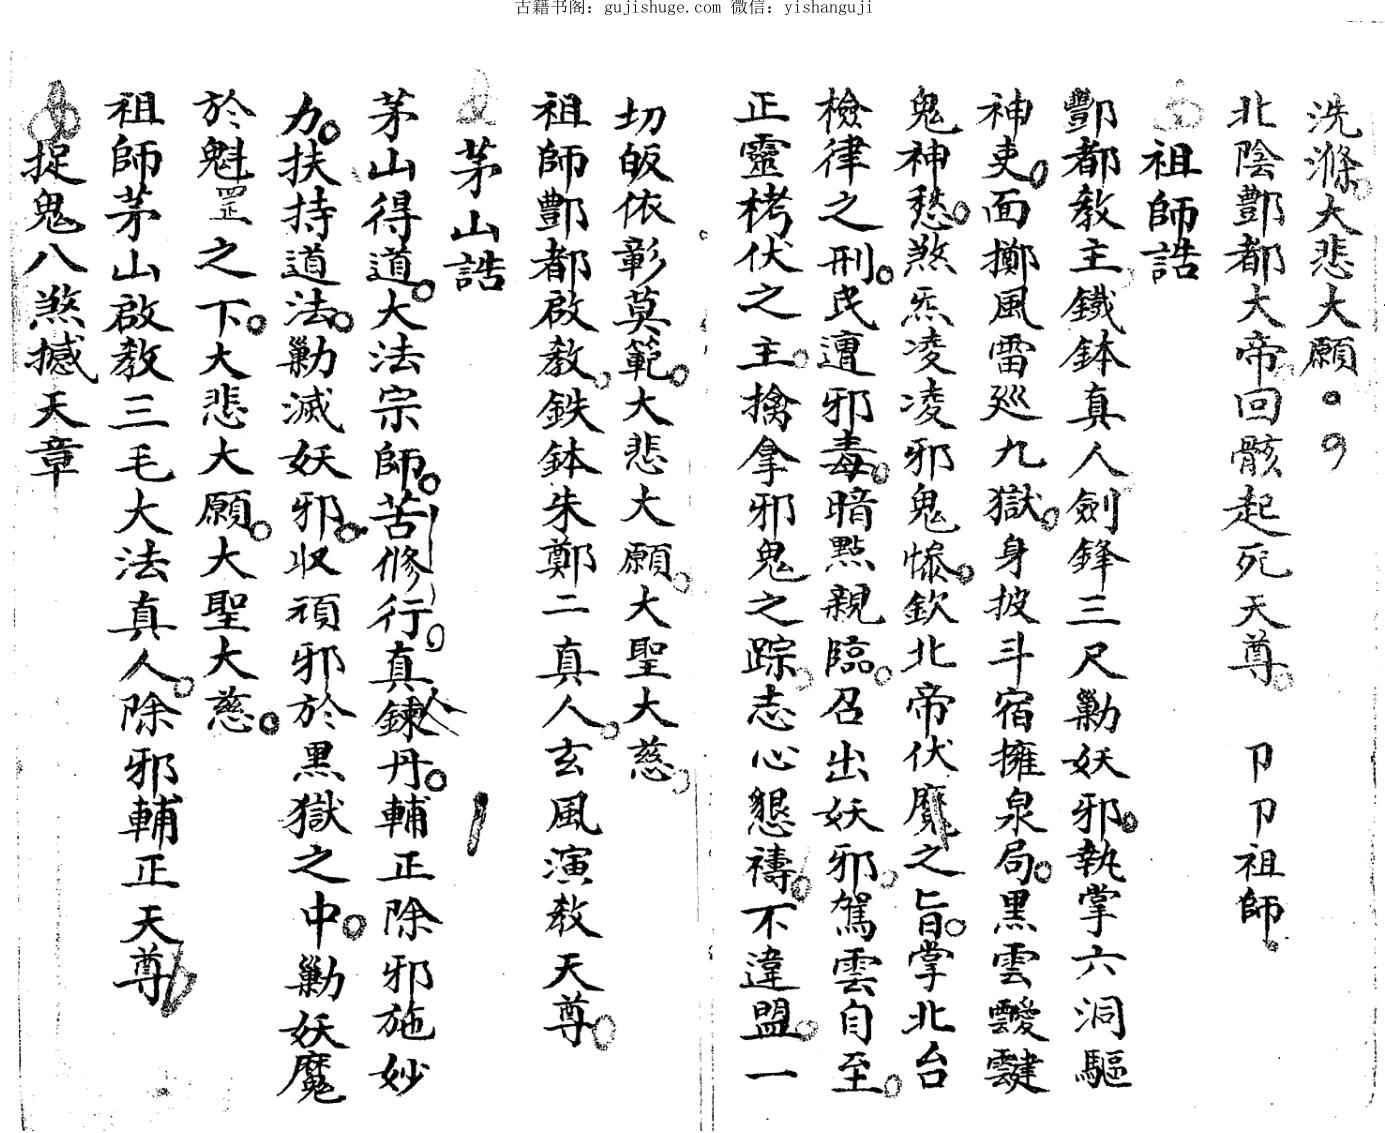 古籍书阁：gujishuge.com 微信：yishanguji
洗滌大悲大願
北陰酆都大帝回骸起死天尊 卩卩祖師
祖師誥
酆都教主鐵鉢真人劍鋒三尺勦妖邪執掌六洞驅
神吏面擲風雷廵九獄身披斗宿擁泉局黑雲靉靆
鬼神愁煞炁凌凌邪鬼慘欽北帝伏魔之旨掌北台
檢律之刑民遭邪毒暗點親臨召出妖邪駕雲自至
正靈栲伏之主擒拿邪鬼之踪志心懇禱不違盟一
切皈依彰莫範大悲大願大聖大慈
祖師酆都啟教鉄鉢朱鄭二真人玄風演教天尊
茅山誥
茅山得道大法宗師苦修行真鍊丹輔正除邪施妙
力扶持道法勦滅妖邪収頑邪於黑獄之中勦妖魔
於魁罡之下大悲大願大聖大慈
祖師茅山啟教三毛大法真人除邪輔正天尊
捉鬼八煞撼天章